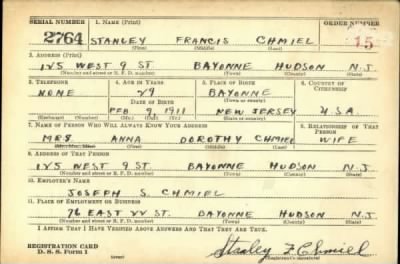 SERIAL NUMBER 1. NAME (Print) ORDER NUMBER
2764 STANLEY FRANCIS CHMIEL 15
(First) (Middle) (Last)
2. ADDRESS (Print)
125 WEST 9 ST. BAYONNE HUDSON N.J.
(Number and street or R. F. D. number) (Town) (County) (State)
3. TELEPHONE 4. AGE IN YEARS 5. PLACE OF BIRTH 6. COUNTRY OF CITIZENSHIP
NONE 29 BAYONNE
DATE OF BIRTH (Town or county)
FEB 9 1911 NEW JERSEY U.S.A.
(Exchange) (Number) (Mo.) (Day) (Yr.) (State or country)
7. NAME OF PERSON WHO WILL ALWAYS KNOW YOUR ADDRESS 8. RELATIONSHIP OF THAT PERSON
MRS ANNA DOROTHY CHMIEL WIFE
(Mr., Mrs., Miss) (First) (Middle) (Last)
9. ADDRESS OF THAT PERSON
125 WEST 9 ST. BAYONNE HUDSON N.J.
(Number and street or R. F. D. number) (Town) (County) (State)
10. EMPLOYER'S NAME
JOSEPH S. CHMIEL
11. PLACE OF EMPLOYMENT OR BUSINESS
76 EAST 22 ST. BAYONNE HUDSON N.J.
(Number and street or R. F. D. number) (Town) (County) (State)
I AFFIRM THAT I HAVE VERIFIED ABOVE ANSWERS AND THAT THEY ARE TRUE.
REGISTRATION CARD
D. S. S. Form 1 Stanley F Chmiel
(Registrant's signature)